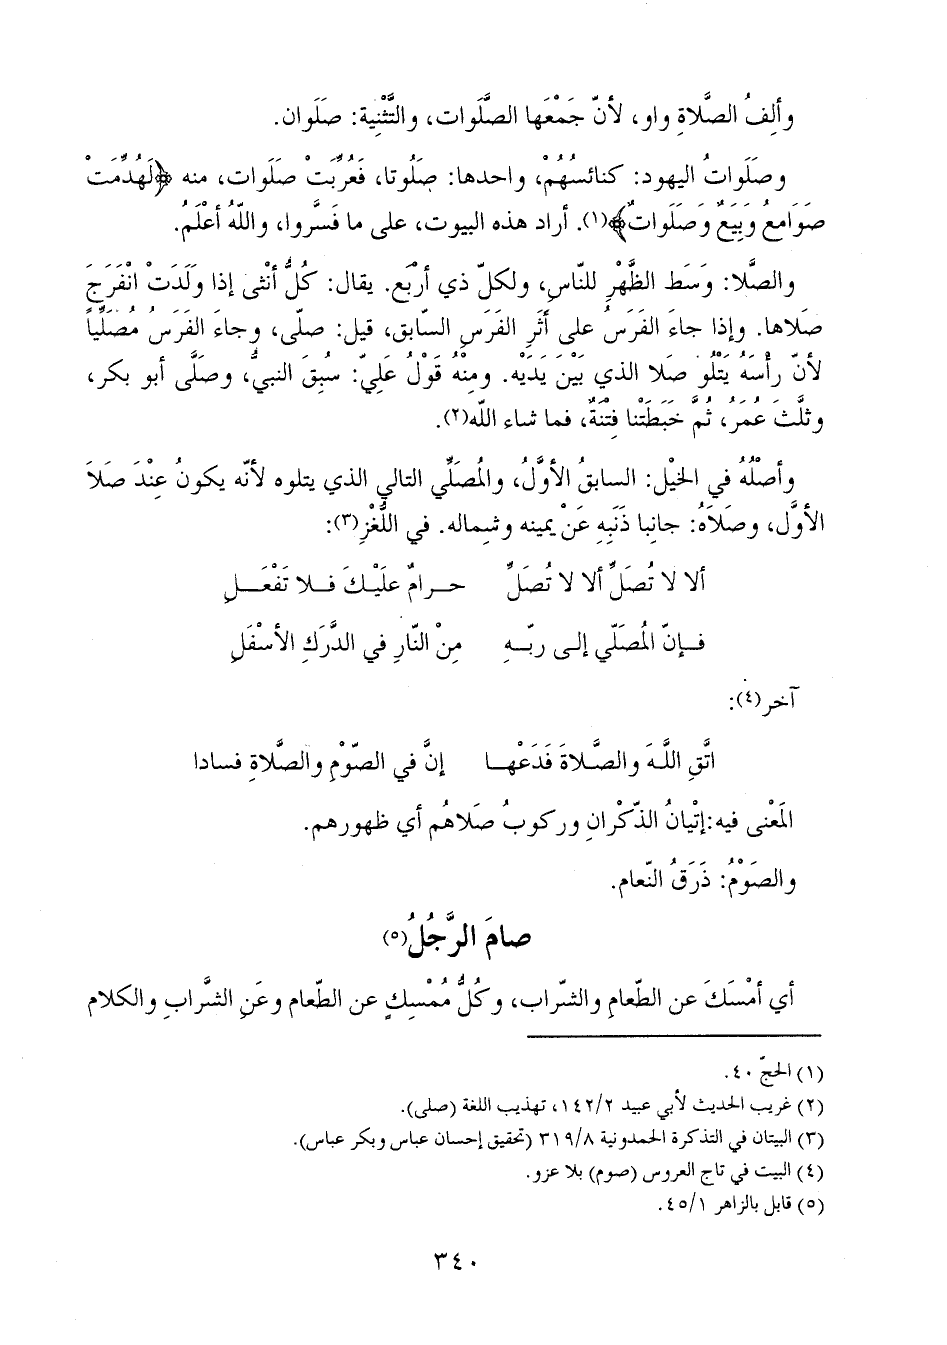 وألِفُ الصَّلاةِ واو، لأنّ جَمْعَها الصَّلَوات، والتَّثْنِية: صَلَوان.
وصَلَواتُ اليهود: كنائسُهُمْ، واحدها: صَلُوتا، فَعُرِّبَتْ صَلَوات، منه ﴿لَهُدِّمَتْ
صَوَامعُ وَبِيَعٌ وَصَلَواتٌ﴾(١). أراد هذه البيوت، على ما فَسَّروا، واللّهُ أعْلَمُ.
والصَّلا: وَسَط الظَّهْرِ للنّاسِ، ولكلّ ذي أرْبَع. يقال: كلُّ أنْثى إذا وَلَدَتْ انْفَرَجَ
صَلاها. وإذا جاءَ الفَرَسُ على أثَرِ الفَرَسِ السّابق، قيل: صلّى، وجاءَ الفَرَسُ مُصَلِّياً
لأنّ رأْسَهُ يَتْلُو صَلا الذي بَيْنَ يَدَيْه. ومنْهُ قَوْلُ عَلِيّ: سبَقَ النبيُّ، وصَلَّى أبو بكر،
وثلَّثَ عُمَرُ، ثُمَّ خَبَطَتْنا فِتْنَةٌ، فما شاء اللّه(٢).
وأصْلُهُ في الخَيْل: السابقُ الأوَّلُ، والمُصَلِّي التالي الذي يتلوه لأنّه يكونُ عِنْدَ صَلاَ
الأوَّل، وصَلاَهُ: جانِبا ذَنَبِهِ عَنْ يمينه وشِماله. في اللُّغْزِ(٣):
ألا لا تُصَلِّ ألا لا تُصَلِّ حـرامٌ عَلَيْـكَ فـلا تَفْعَـلِ
فـإنّ المُصَلّي إلـى ربّـهِ مِنْ النّارِ في الدَّرَكِ الأسْفَلِ
آخر(٤):
اتَّقِ اللَّـهَ والصَّـلاةَ فَدَعْهـا إنَّ في الصّوْمِ والصَّلاةِ فسادا
المَعْنى فيه: إتْيانُ الذّكْرانِ وركوبُ صَلاهُم أي ظهورهم.
والصَوْمُ: ذَرَقُ النّعام.
صامَ الرَّجُلُ(٥)
أي أمْسَكَ عن الطّعامِ والشّراب، وكُلُّ مُمْسِكٍ عن الطّعام وعَنِ الشَّرابِ والكلام
(١) الحجّ ٤٠.
(٢) غريب الحديث لأبي عبيد ١٤٢/٢، تهذيب اللغة (صلى).
(٣) البيتان في التذكرة الحمدونية ٣١٩/٨ (تحقيق إحسان عباس وبكر عباس).
(٤) البيت في تاج العروس (صوم) بلا عزو.
(٥) قابل بالزاهر ٤٥/١.
٣٤٠